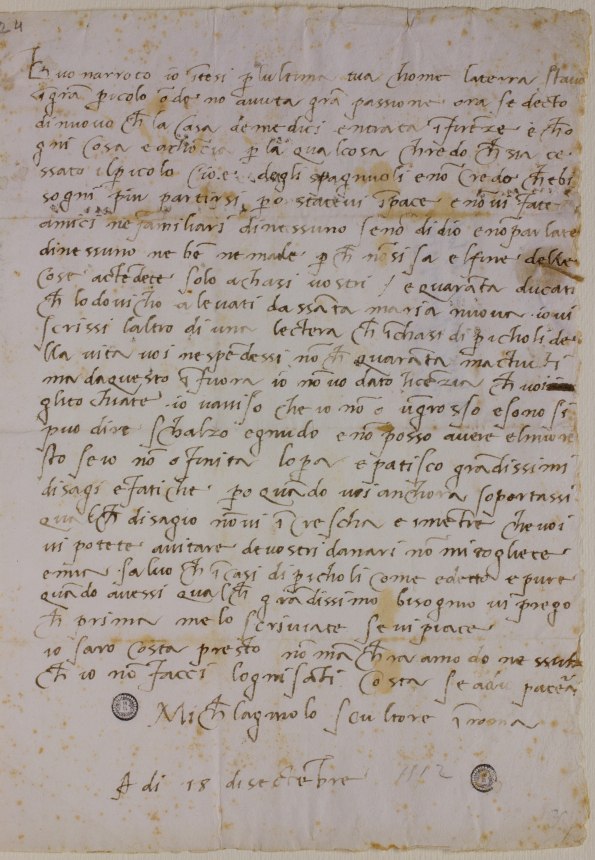 24
Buonarroto io i͂tesi p͂ lultima tua chome laterra stava
i͂ gra͂ p͂icolo o͂de no avuta gra͂ passione ora se decto
di nuovo ch͂ la casa de medici e entrata i͂ fire͂ze e ch͂ o
gni cosa e achoncia p͂ la qualcosa chredo ch͂ sia ce
ssato il p͂icolo cioe degli spagnuoli e no credo ch͂ bi
sogni piu partirsi po statevi i͂ pace e no͂ vi fate
amici ne familiari di nessuno se no͂ di dio e no͂ parlate
di nessuno ne be͂ ne male p͂ ch͂ no͂ si sa el fine delle
cose acte͂dete solo a chasi vostri / e quara͂ta ducati
ch͂ lodovicho a levati da ssa͂ta maria nuova io vi
scrissi laltro di una lectera ch͂ i͂ chasi di p͂icholi de
lla vita voi ne spe͂dessi no͂ ch͂ quara͂ta ma tucti
ma da questo i͂ fuora io no͂ vo dato lice͂zia ch͂ voi
gli tochiate io vaviso che io no͂ o u͂ grosso e sono si
puo dire schalzo e gnudo e no͂ posso avere el mio re
sto se io no͂ o finita lopa͂ e patisco gra͂dissimi
disagi e fatiche po qua͂do voi anchora soportassi
qualch͂ disagio no͂ vi i͂crescha e me͂tre che voi
vi potete aiutare de vostri danari no͂ mi togliete
e mia salvo ch͂ i͂ casi di p͂icholi come e decto e pure
qua͂do avessi qualch͂ gra͂dissimo bisognio vi prego
ch͂ prima me lo scriviate se vi piace
io saro costa presto no͂ ma͂ch͂ra a modo nessuno
ch͂ io no͂ facci lognisa͂ti costa se a dio piacera͂
Michelagniolo scultore i͂ roma
A di 18 di secte͂bre 1512